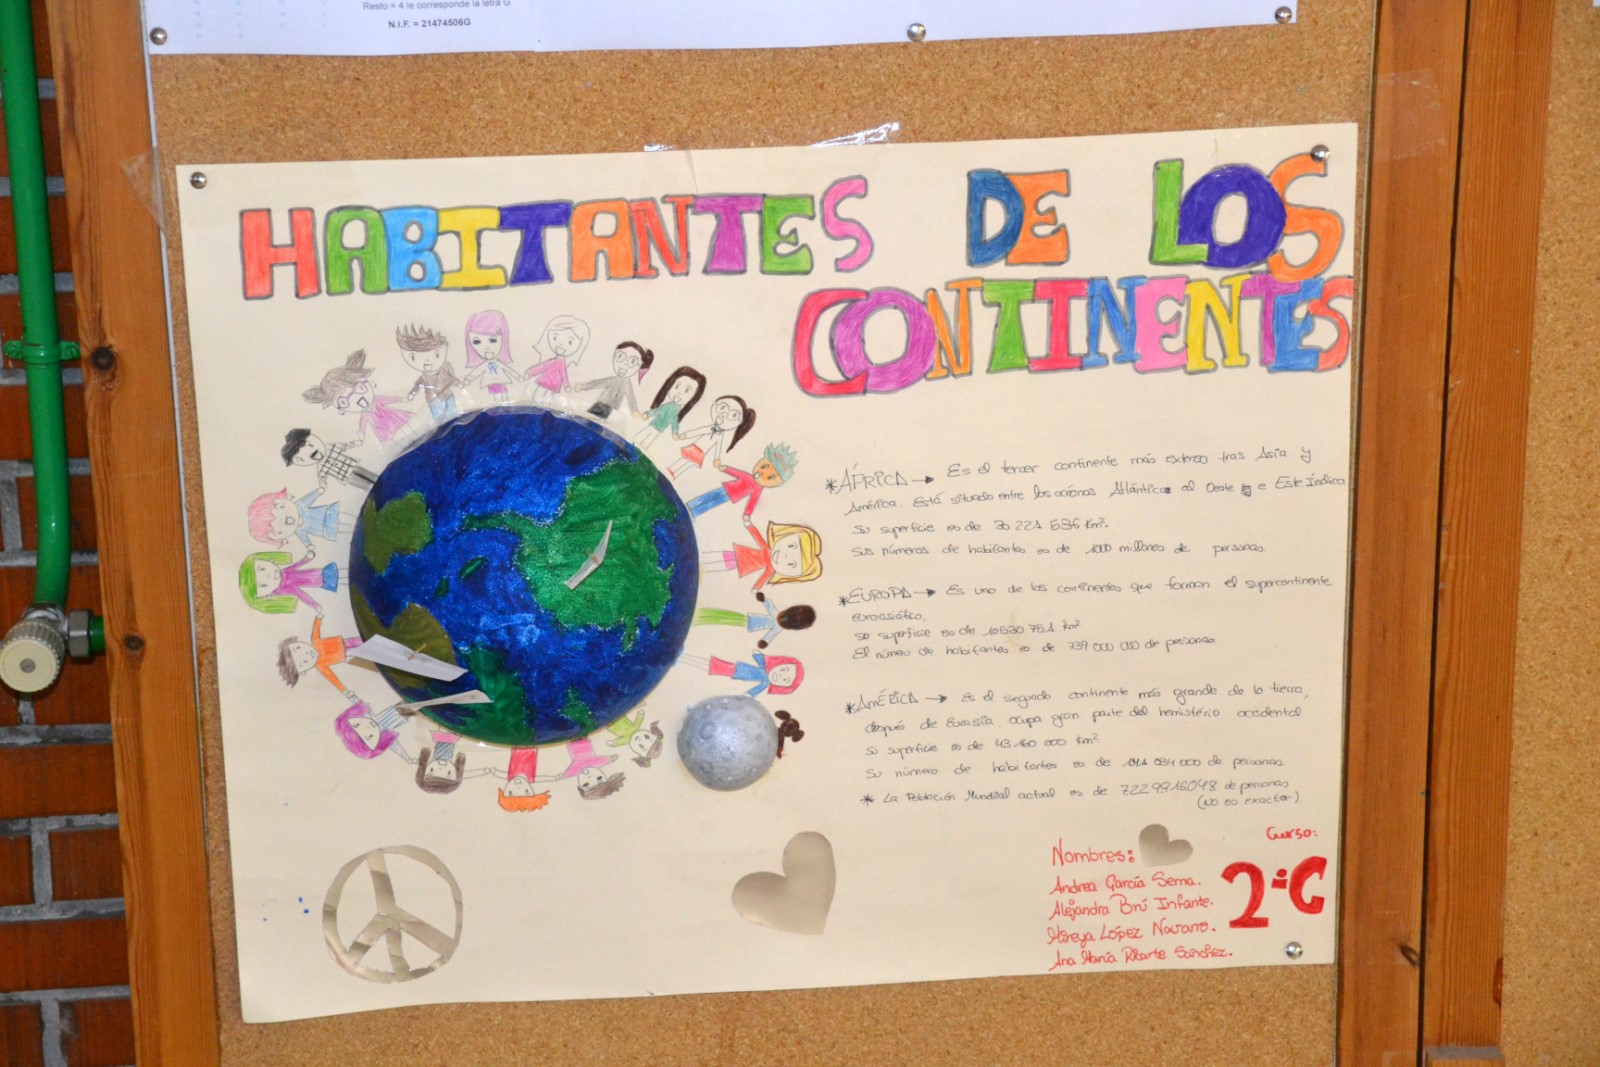 Resto = 4 le corresponde la letra G
N.I.F. = 21474506G
HABITANTES DE LOS
CONTINENTES
*ÁFRICA → Es el tercer continente más extenso tras Asia y
América. Está situado entre los océanos Atlántico al Oeste e Este Índico
Su superficie es de 30 221 536 Km².
Sus números de habitantes es de 1000 millones de personas.
*EUROPA → Es uno de los continentes que forman el supercontinente
euroasiático.
Su superficie es de 10 530 751 Km²
El número de habitantes es de 739 000 000 de personas.
*AMÉRICA → Es el segundo continente más grande de la tierra,
después de Eurasia, ocupa gran parte del hemisferio occidental
Su superficie es de 43 160 000 Km².
Su número de habitantes es de 084 000 de personas.
* La Población Mundial actual es de 7229916048 de personas
(No es exacto)
Curso:
2ºC
Nombres:
Andrea García Serna.
Alejandra Brú Infante.
Mireya López Navarro.
Ana María Sánchez.